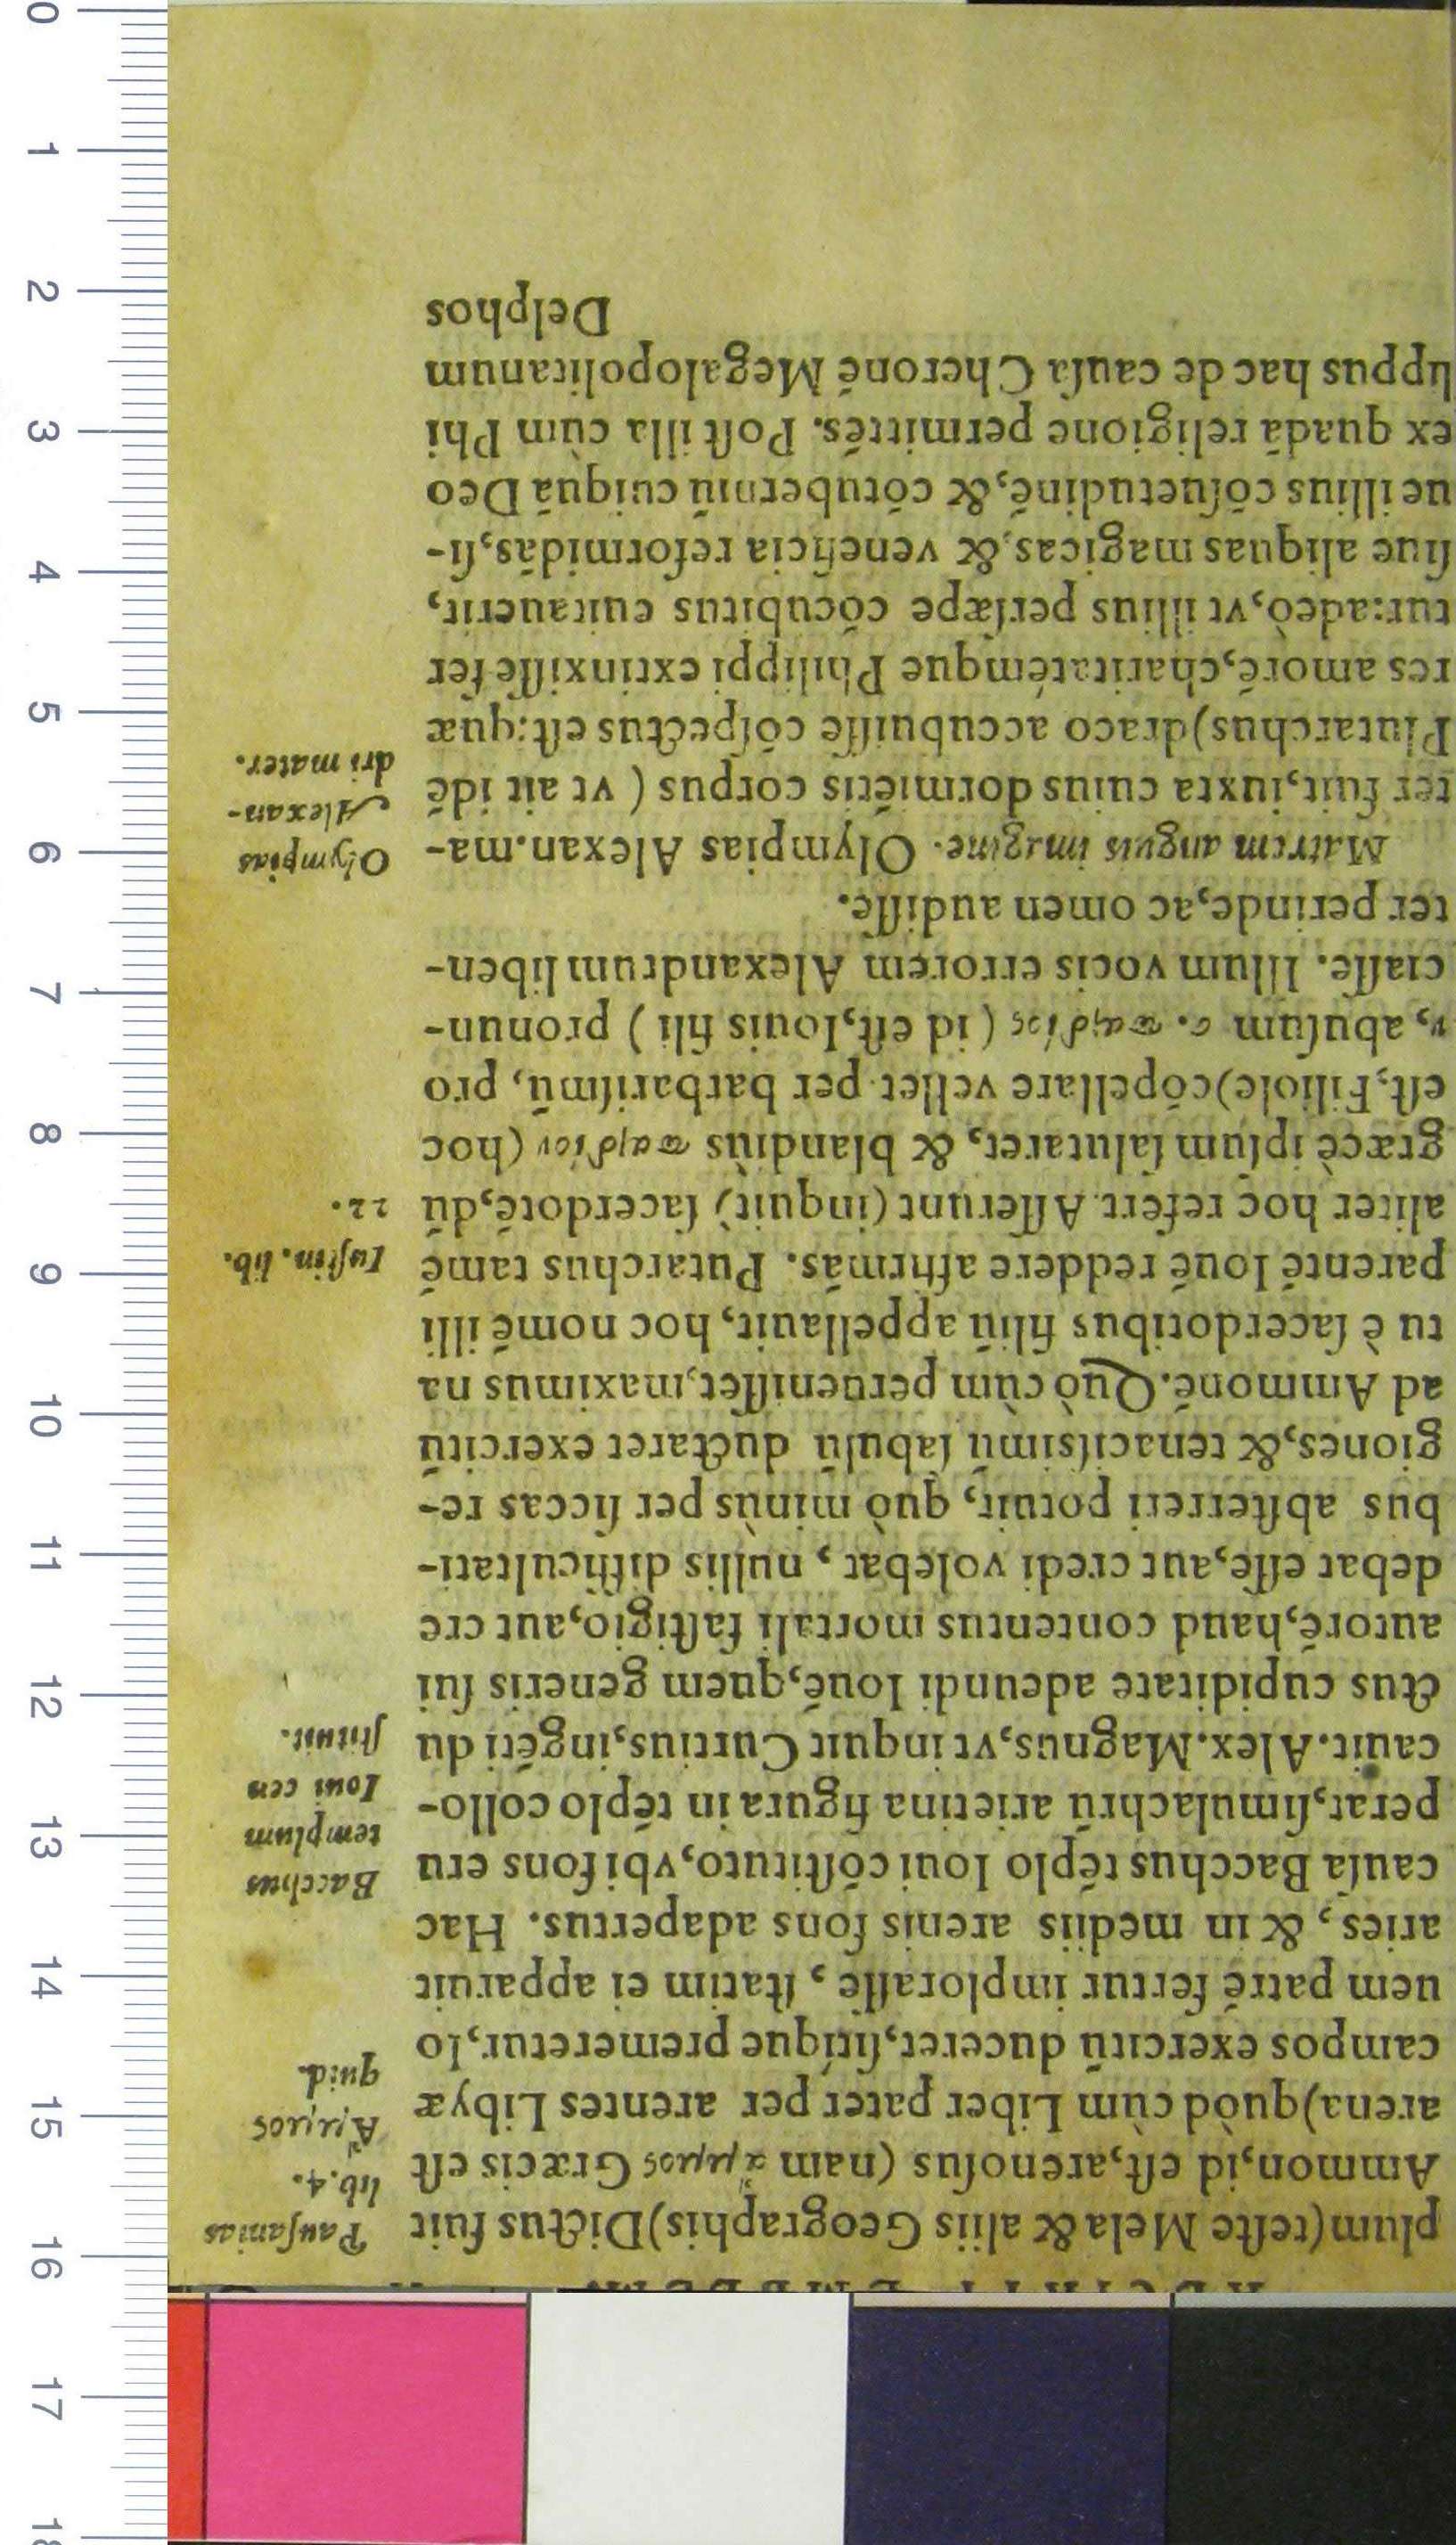 plum(teste Mela & aliis Geographis)Dictus fuit
Ammon,id est,arenosus (nam ἄμμος Græcis est
arena)quòd cùm Liber pater per arentes Libyæ
campos exercitũ duceret,sitíque premeretur,Io
uem patrẽ fertur implorasse, statim ei apparuit
aries, & in mediis arenis fons adapertus. Hac
causa Bacchus tẽplo Ioui cõstituto,vbi fons eru
perat,simulachrũ arietina figura in tẽplo collo-
cauit. Alex.Magnus,vt inquit Curtius,ingẽti du
ctus cupiditate adeundi Iouẽ,quem generis sui
autorẽ,haud contentus mortali fastigio,aut cre
debat esse,aut credi volebat, nullis difficultati-
bus absterreri potuit, quò minùs per siccas re-
giones,& tenacissimũ sabulũ ductaret exercitũ
ad Ammonẽ.Quò cùm peruenisset,maximus na
tu è sacerdotibus filiũ appellauit, hoc nomẽ illi
parentẽ Iouẽ reddere affirmãs. Putarchus tamẽ
aliter hoc refert. Asserunt (inquit) sacerdotẽ,dũ
græcè ipsum salutaret, & blandiùs παιδίον (hoc
est,Filiole)cõpellare vellet per barbarismũ, pro
ν, abusum ς. παιδίος (id est,Iouis fili) pronun-
ciasse. Illum vocis errorem Alexandrum liben-
ter perinde,ac omen audisse.
Matrem anguis imagine. Olympias Alexan.ma-
ter fuit,iuxta cuius dormiẽtis corpus (vt ait idẽ
Plutarchus)draco accubuisse cõspectus est:quæ
res amorẽ,charitatémque Philippi extinxisse fer
tur:adeò,vt illius persæpe cõcubitus euitauerit,
siue aliquas magicas,& veneficia reformidãs,si-
ue illius cõsuetudinẽ,& cõtuberniũ cuiquã Deo
ex quadã religione permittẽs. Post illa cùm Phi
lippus hac de causa Cheronẽ Megalopolitanum
Delphos
Pausanias
lib.4.
Ἄμμος
quid.
Bacchus
templum
Ioui con
stituit.
Iustin. lib.
11.
Olympias
Alexan-
dri mater.
0
1
2
3
4
5
6
7
8
9
10
11
12
13
14
15
16
17
18